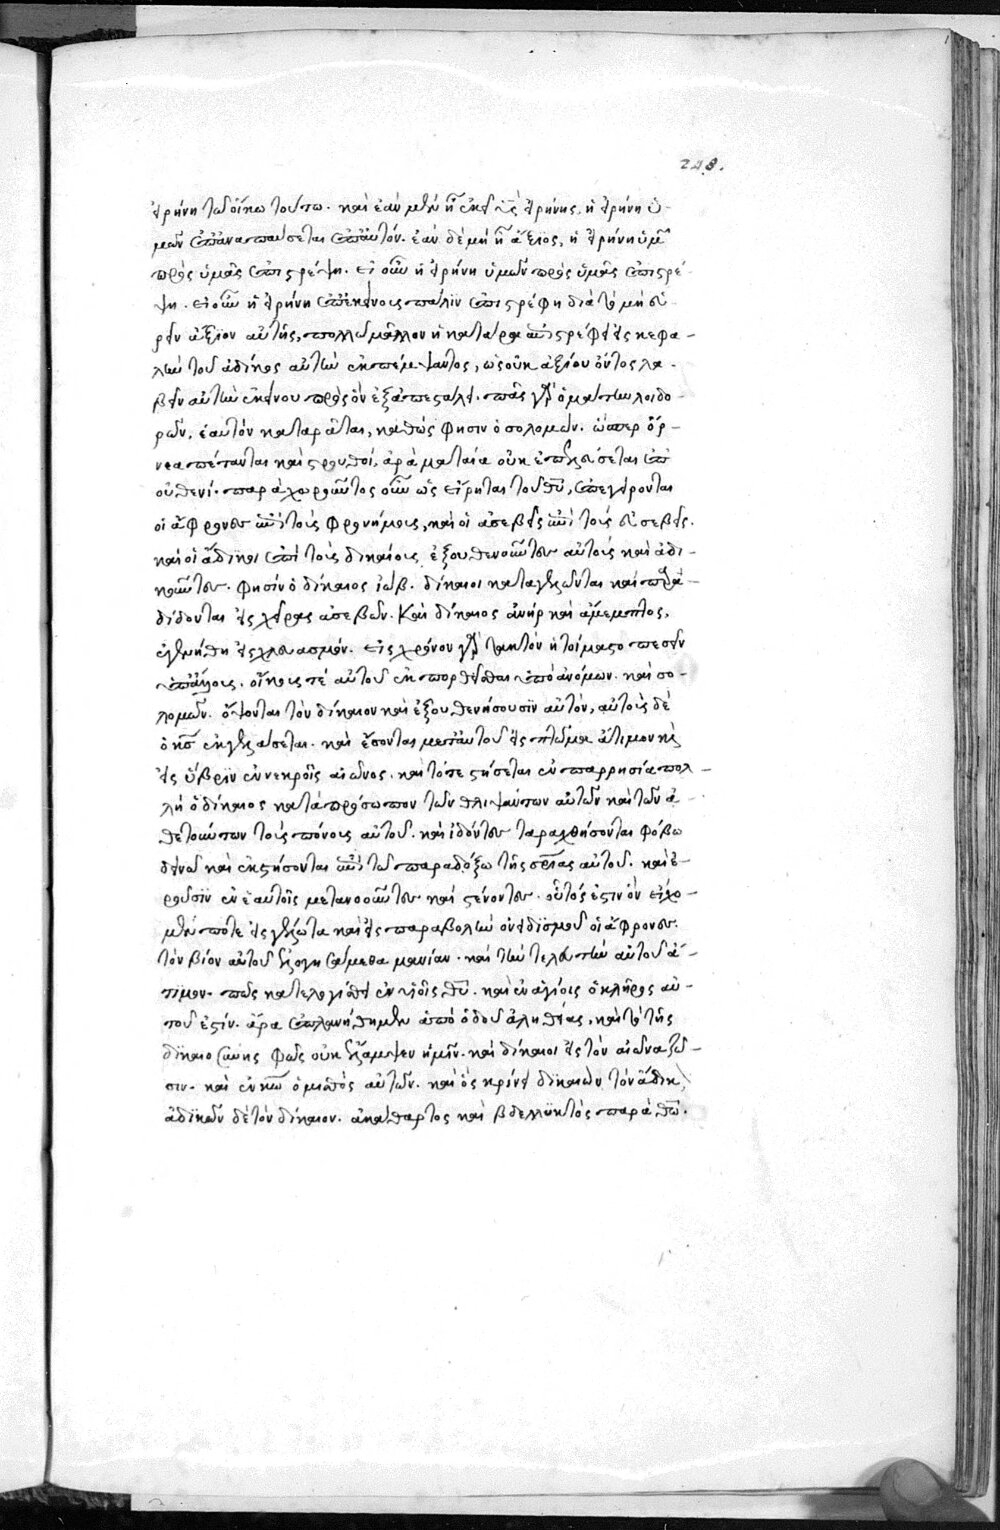 248.
εἰρήνη τῶ οἴκω τούτω. καὶ ἐὰν μὲν ἦ ἐκεῖ υἱὸς εἰρήνης, ἡ εἰρήνη ὑ-
μῶν ἐπαναπαύσεται ἐπ' αὐτόν. ἐὰν δὲ μὴ ἦ ἄξιος, ἡ εἰρήνη ὑμῶν
πρὸς ὑμᾶς ἐπιστρέψη. εἰ οὖν ἡ εἰρήνη ὑμῶν πρὸς ὑμᾶς ἐπιστρέ-
ψη. εἰ οὖν ἡ εἰρήνη ἐπ' ἐκείνοις πάλιν ἐπιστρέφη διὰ τὸ μὴ εὑ-
ρεῖν ἄξιον αὐτῆς, πολλῶ μᾶλλον ἡ κατάρα ἐπιστρέφει εἰς κεφα-
λὴν τοῦ ἀδίκως αὐτὴν ἐκπέμψαντος, ὡς οὐκ ἀξίου ὄντος λα-
βεῖν αὐτὴν ἐκείνου πρὸς ὃν ἐξαπεστάλη. πᾶς γὰρ ὁ μάτην λοιδο-
ρῶν, ἑαυτὸν καταρᾶται, καθώς φησιν ὁ σολομών. ὥσπερ ὄρ-
νεα πέτανται καὶ στρουθοί, ἀρὰ ματαία οὐκ ἐπελεύσεται ἐπ'
οὐθενί. παραχωροῦντος οὖν ὡς εἴρηται τοῦ θυ, ἐπεγείρονται
οἱ ἄφρονες ἐπὶ τοῖς φρονήμοις, καὶ οἱ ἀσεβεῖς ἐπὶ τοῖς εὐσεβεῖς.
καὶ οἱ ἄδικοι ἐπὶ τοῖς δικαίοις ἐξουθενοῦντες αὐτοὺς καὶ ἀδι-
κοῦντες. φησὶν ὁ δίκαιος ἰώβ. δίκαιοι καταγελῶνται καὶ παρα-
δίδονται εἰς χεῖρας ἀσεβῶν. καὶ δίκαιος ἀνὴρ καὶ ἄμεμπτος,
ἐγενήθη εἰς χλευασμόν. εἰς χρόνον γὰρ τακτὸν ἡτοίμαστο πεσεῖν
ὑπ' ἄλλοις. οἴκους τὲ αὐτοῦ ἐκπορθεῖσθαι ὑπὸ ἀνόμων. καὶ σο-
λομών. ὄψονται τὸν δίκαιον καὶ ἐξουθενήσουσιν αὐτόν, αὐτοὺς δὲ
ὁ κς ἐκγελάσεται. καὶ ἔσονται μετ' αὐτοῦ εἰς πτῶμα ἄτιμον καὶ
εἰς ὕβριν ἐν νεκροῖς αἰῶνος. καὶ τότε στήσεται ἐν παρρησία πολ-
λῆ ὁ δίκαιος κατὰ πρόσωπον τῶν θλιψάντων αὐτῶν καὶ τῶν ἀ-
θετούντων τοὺς πόνους αὐτοῦ. καὶ ἰδόντες ταραχθήσονται φόβω
δεινῶ καὶ ἐκστήσονται ἐπὶ τῶ παραδόξω τῆς σριας αὐτοῦ. καὶ ἐ-
ροῦσιν ἐν ἑαυτοῖς μετανοοῦντες καὶ στένοντες. οὗτός ἐστιν ὃν εἴχο-
μέν ποτε εἰς γέλωτα καὶ εἰς παραβολὴν ὀνειδισμοῦ οἱ ἄφρονες.
τὸν βίον αὐτοῦ ἐλογισάμεθα μανίαν. καὶ τὴν τελευτὴν αὐτοῦ ἄ-
τιμον. πῶς κατελογίσθη ἐν υἱοῖς θυ. καὶ ἐν ἁγίοις ὁ κλῆρος αὐ-
τοῦ ἐστίν. ἄρα ἐπλανήθημεν ἀπὸ ὁδοῦ ἀληθείας, καὶ τὸ τῆς
δικαιοσύνης φῶς οὐκ ἔλαμψεν ἡμῖν. καὶ δίκαιοι εἰς τὸν αἰῶνα ζῶ-
σιν. καὶ ἐν κω ὁ μισθὸς αὐτῶν. καὶ ὃς κρίνει δίκαιον τὸν ἄδικον,
ἄδικον δὲ τὸν δίκαιον. ἀκάθαρτος καὶ βδελυκτὸς παρὰ θω.